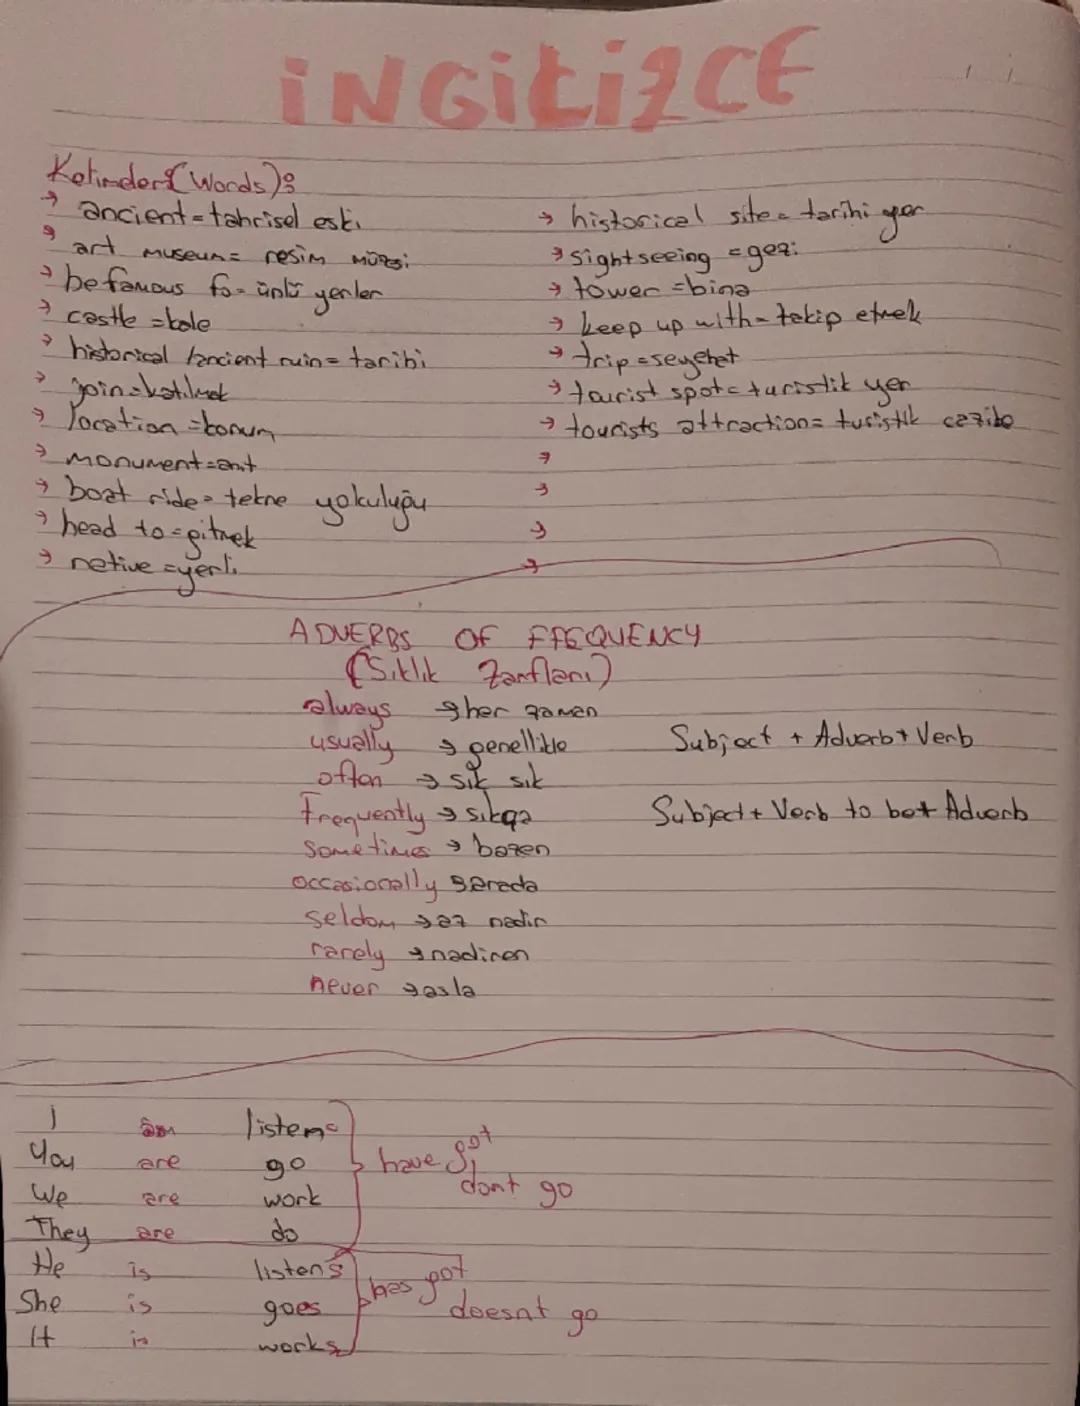 İNGİLİZCE
Kelimeler (Words):
→ ancient = tahrisel eski
→ art museum = resim müzesi
→ be famous fo = ünlü yerler
→ castle = kale
→ historical / ancient ruin = tarihi
→ join = katılmak
→ location = konum
→ monument = anıt
→ boat ride = tekne yokuluğu
→ head to = gitmek
→ netive = yerli
→ historical site = tarihi yer
→ sightseeing = gezi
→ tower = bina
→ keep up with = takip etmek
→ trip = seyehat
→ tourist spot = turistik yer
→ tourists attraction = turistik cazibe
→
→
→
→
ADVERBS OF FREQUENCY
(Sıklık Zarfları)
always → her zaman
usually → genellikle
often → sık sık
Frequently → sıkça
Sometimes → bazen
occasionally → arada
seldom → az nadir
rarely → nadiren
never → asla
Subject + Adverb + Verb
Subject + Verb to be + Adverb
I am listen
You are go
We are work
They are do
have got
dont go
He is listens
She is goes
It is works
has got
doesnt go